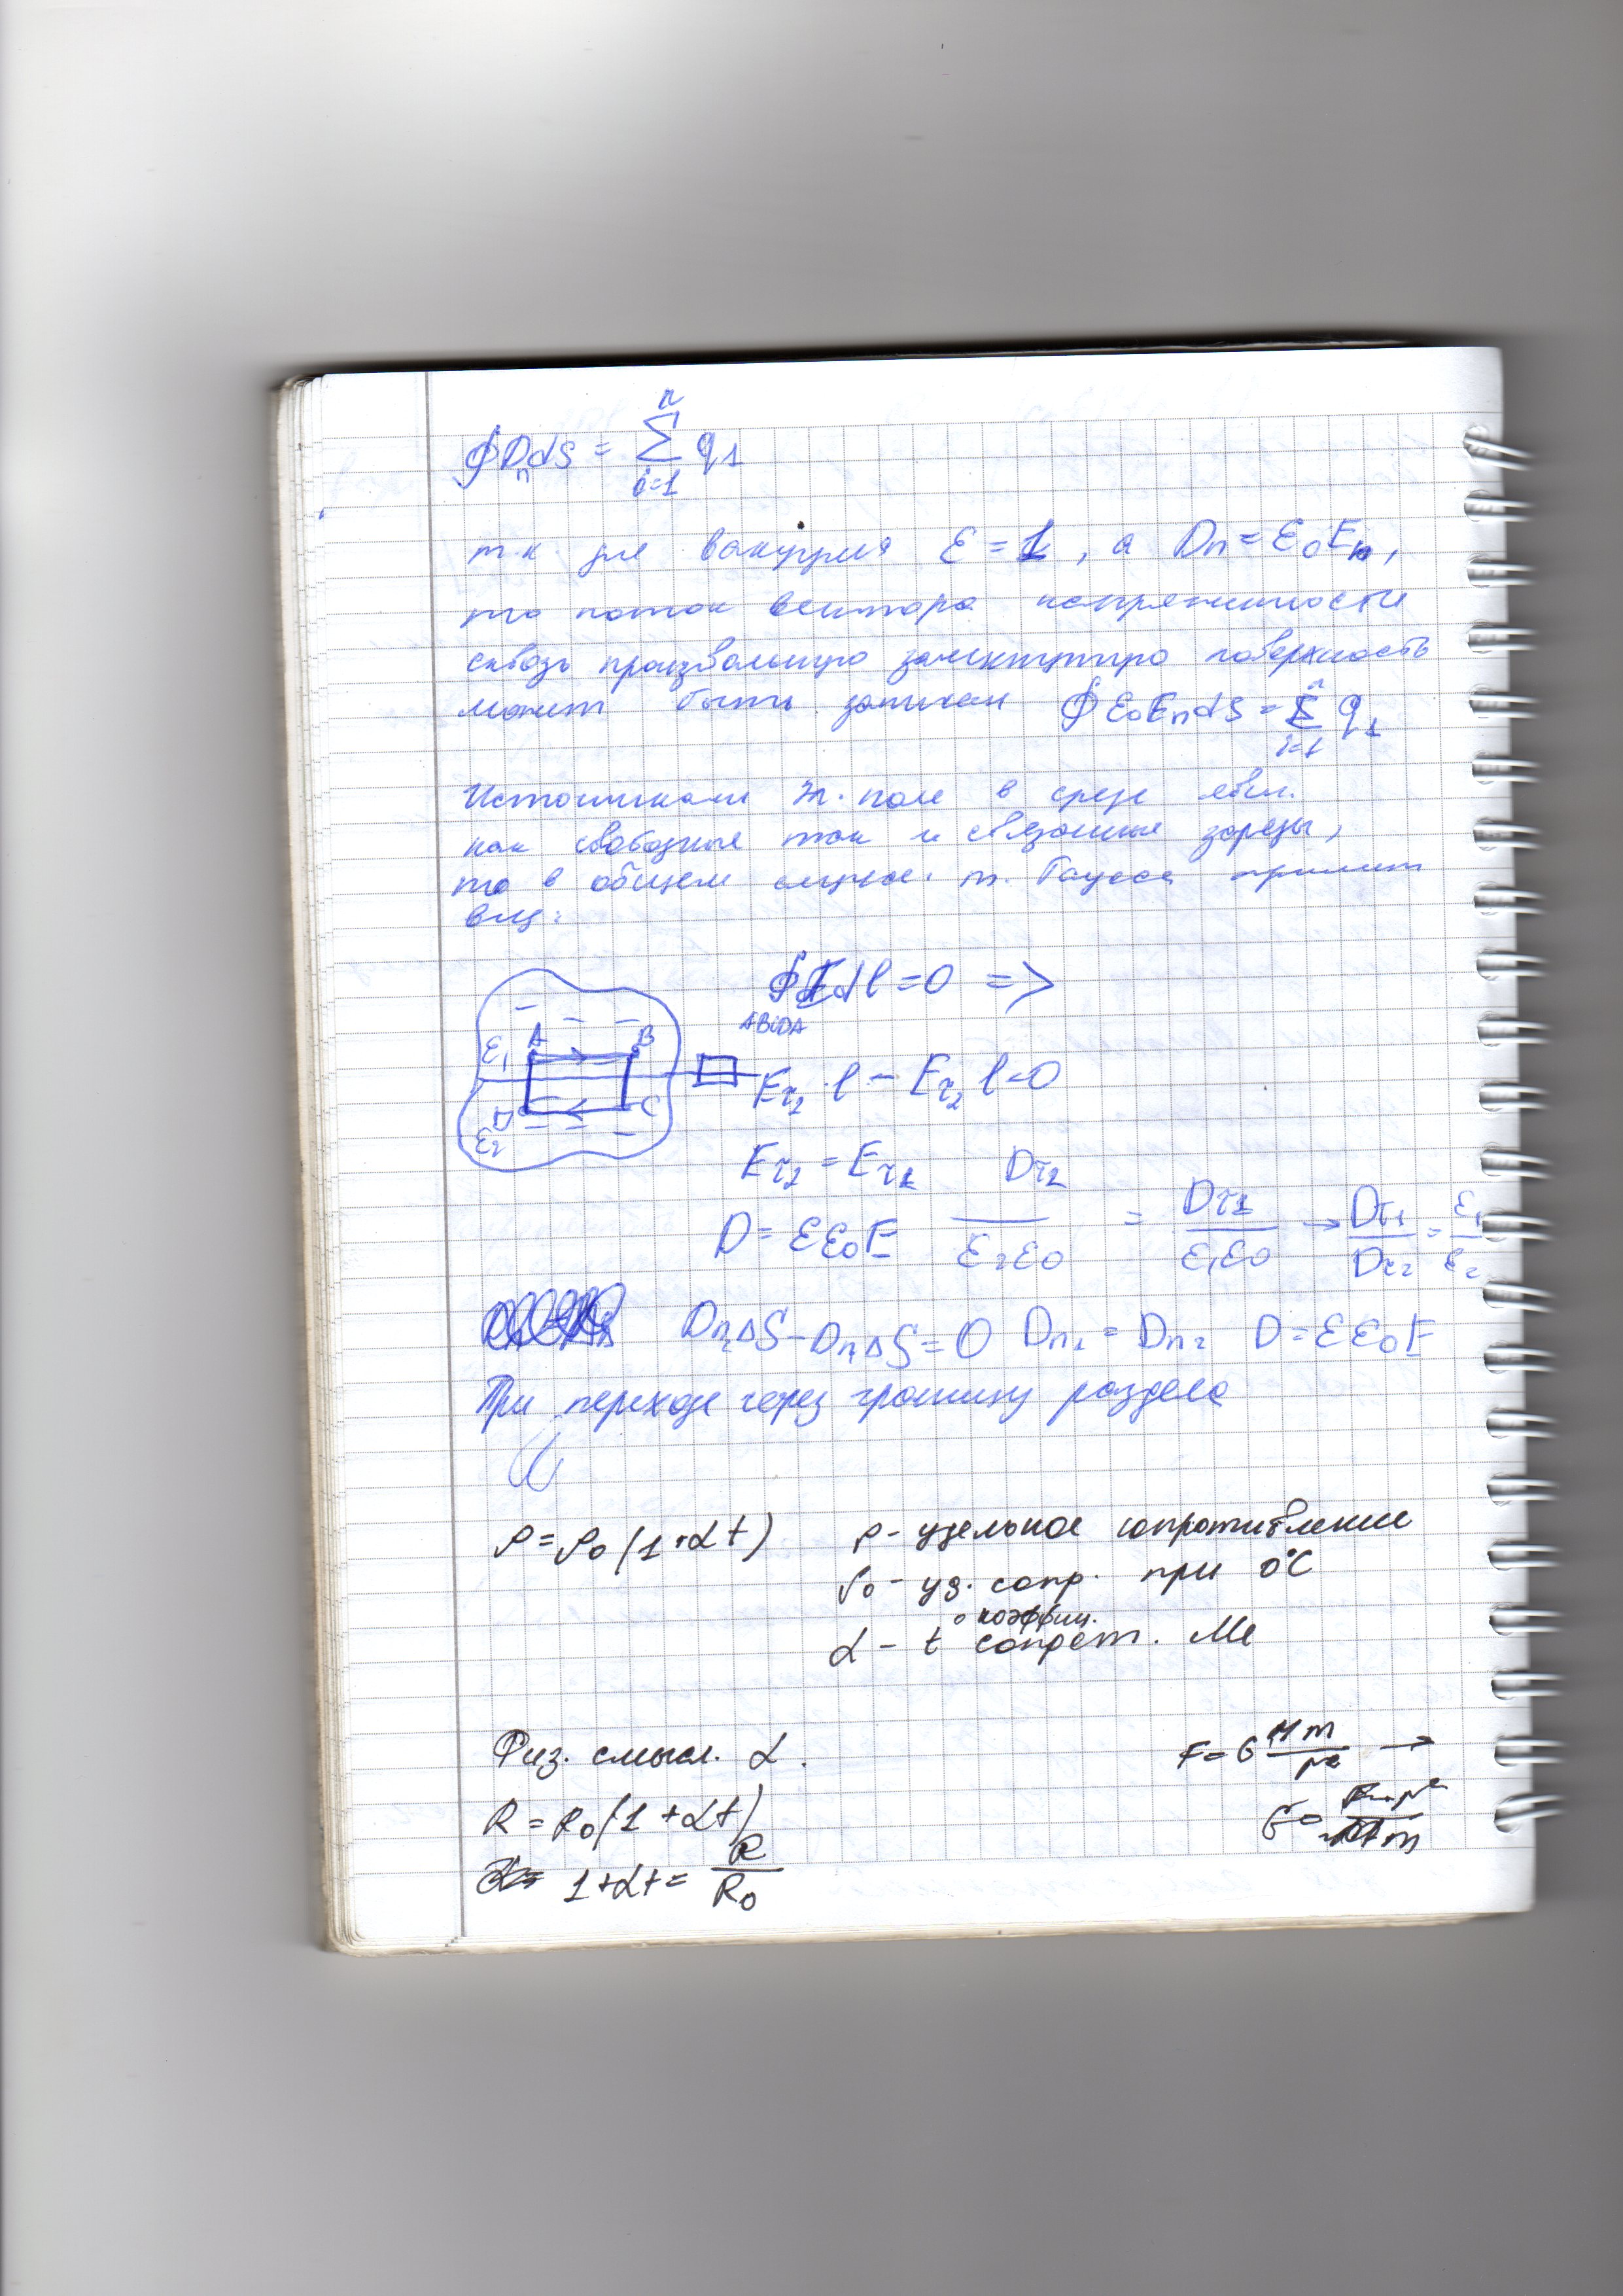 ∮DndS = Σ q1
n
i=1
т.к для вакуума ε = 1, а Dn = ε0En,
то поток вектора напряженности
сквозь произвольную замкнутую поверхность
может быть записан ∮ε0EndS = Σ q1
n
i=1
Источниками эл. поле в среде явл.
как свободные так и связанные заряды,
то в общем случае. т. Гаусса примет
вид:
∮Edl = 0 =>
ABCDA
A B
ε1
Eτ2·l - Eτ2 l = 0
D C
ε2
Eτ2 = Eτ1
D = εε0E Dτ2/ε2ε0 = Dτ1/ε1ε0 → Dτ1/Dτ2 = ε1/ε2
Dn2ΔS - Dn1ΔS = 0 Dn1 = Dn2 D = εε0E
При переходе через границу раздела
ρ = ρ0(1+αt) ρ - удельное сопротивление
ρ0 - уд. сопр. при 0°C
α - t° коэффиц. сопрот. Ме
Физ. смысл. α.
F = G Mm/r2 →
R = R0(1+αt)
1+αt = R/R0